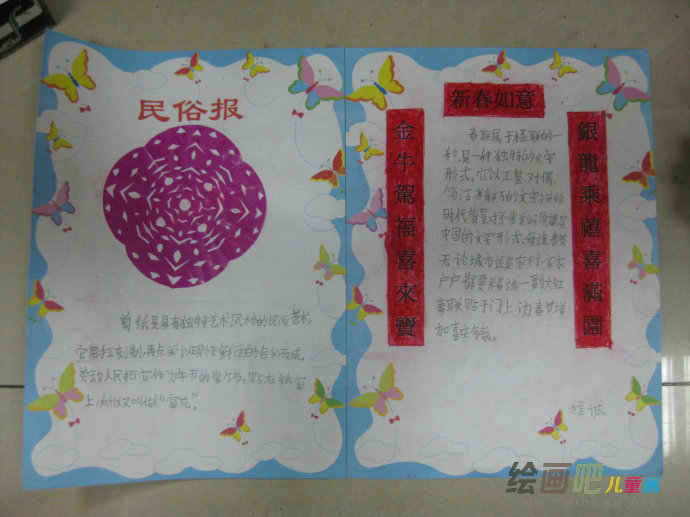 民俗报
剪纸是具有独特艺术风格的民间艺术,
它用手工刻制,再点染以明快鲜丽的色彩而成。
劳动人民把它作为年节的装饰,贴在纸窗
上,所以又叫做“窗花”。
新春如意
金牛駕福喜來寶
春联属于楹联的一
种,是一种独特的文字
形式。它以工整、对偶、
简洁、精巧的文字描绘
时代背景,抒发美好愿望,是
中国的文字形式,每逢春节
无论城市还是农村,家家
户户都要精选一副大红
春联贴于门上,为春节增
加喜庆气氛。
銀龍乘禧喜滿園
程诚
绘画吧儿童画